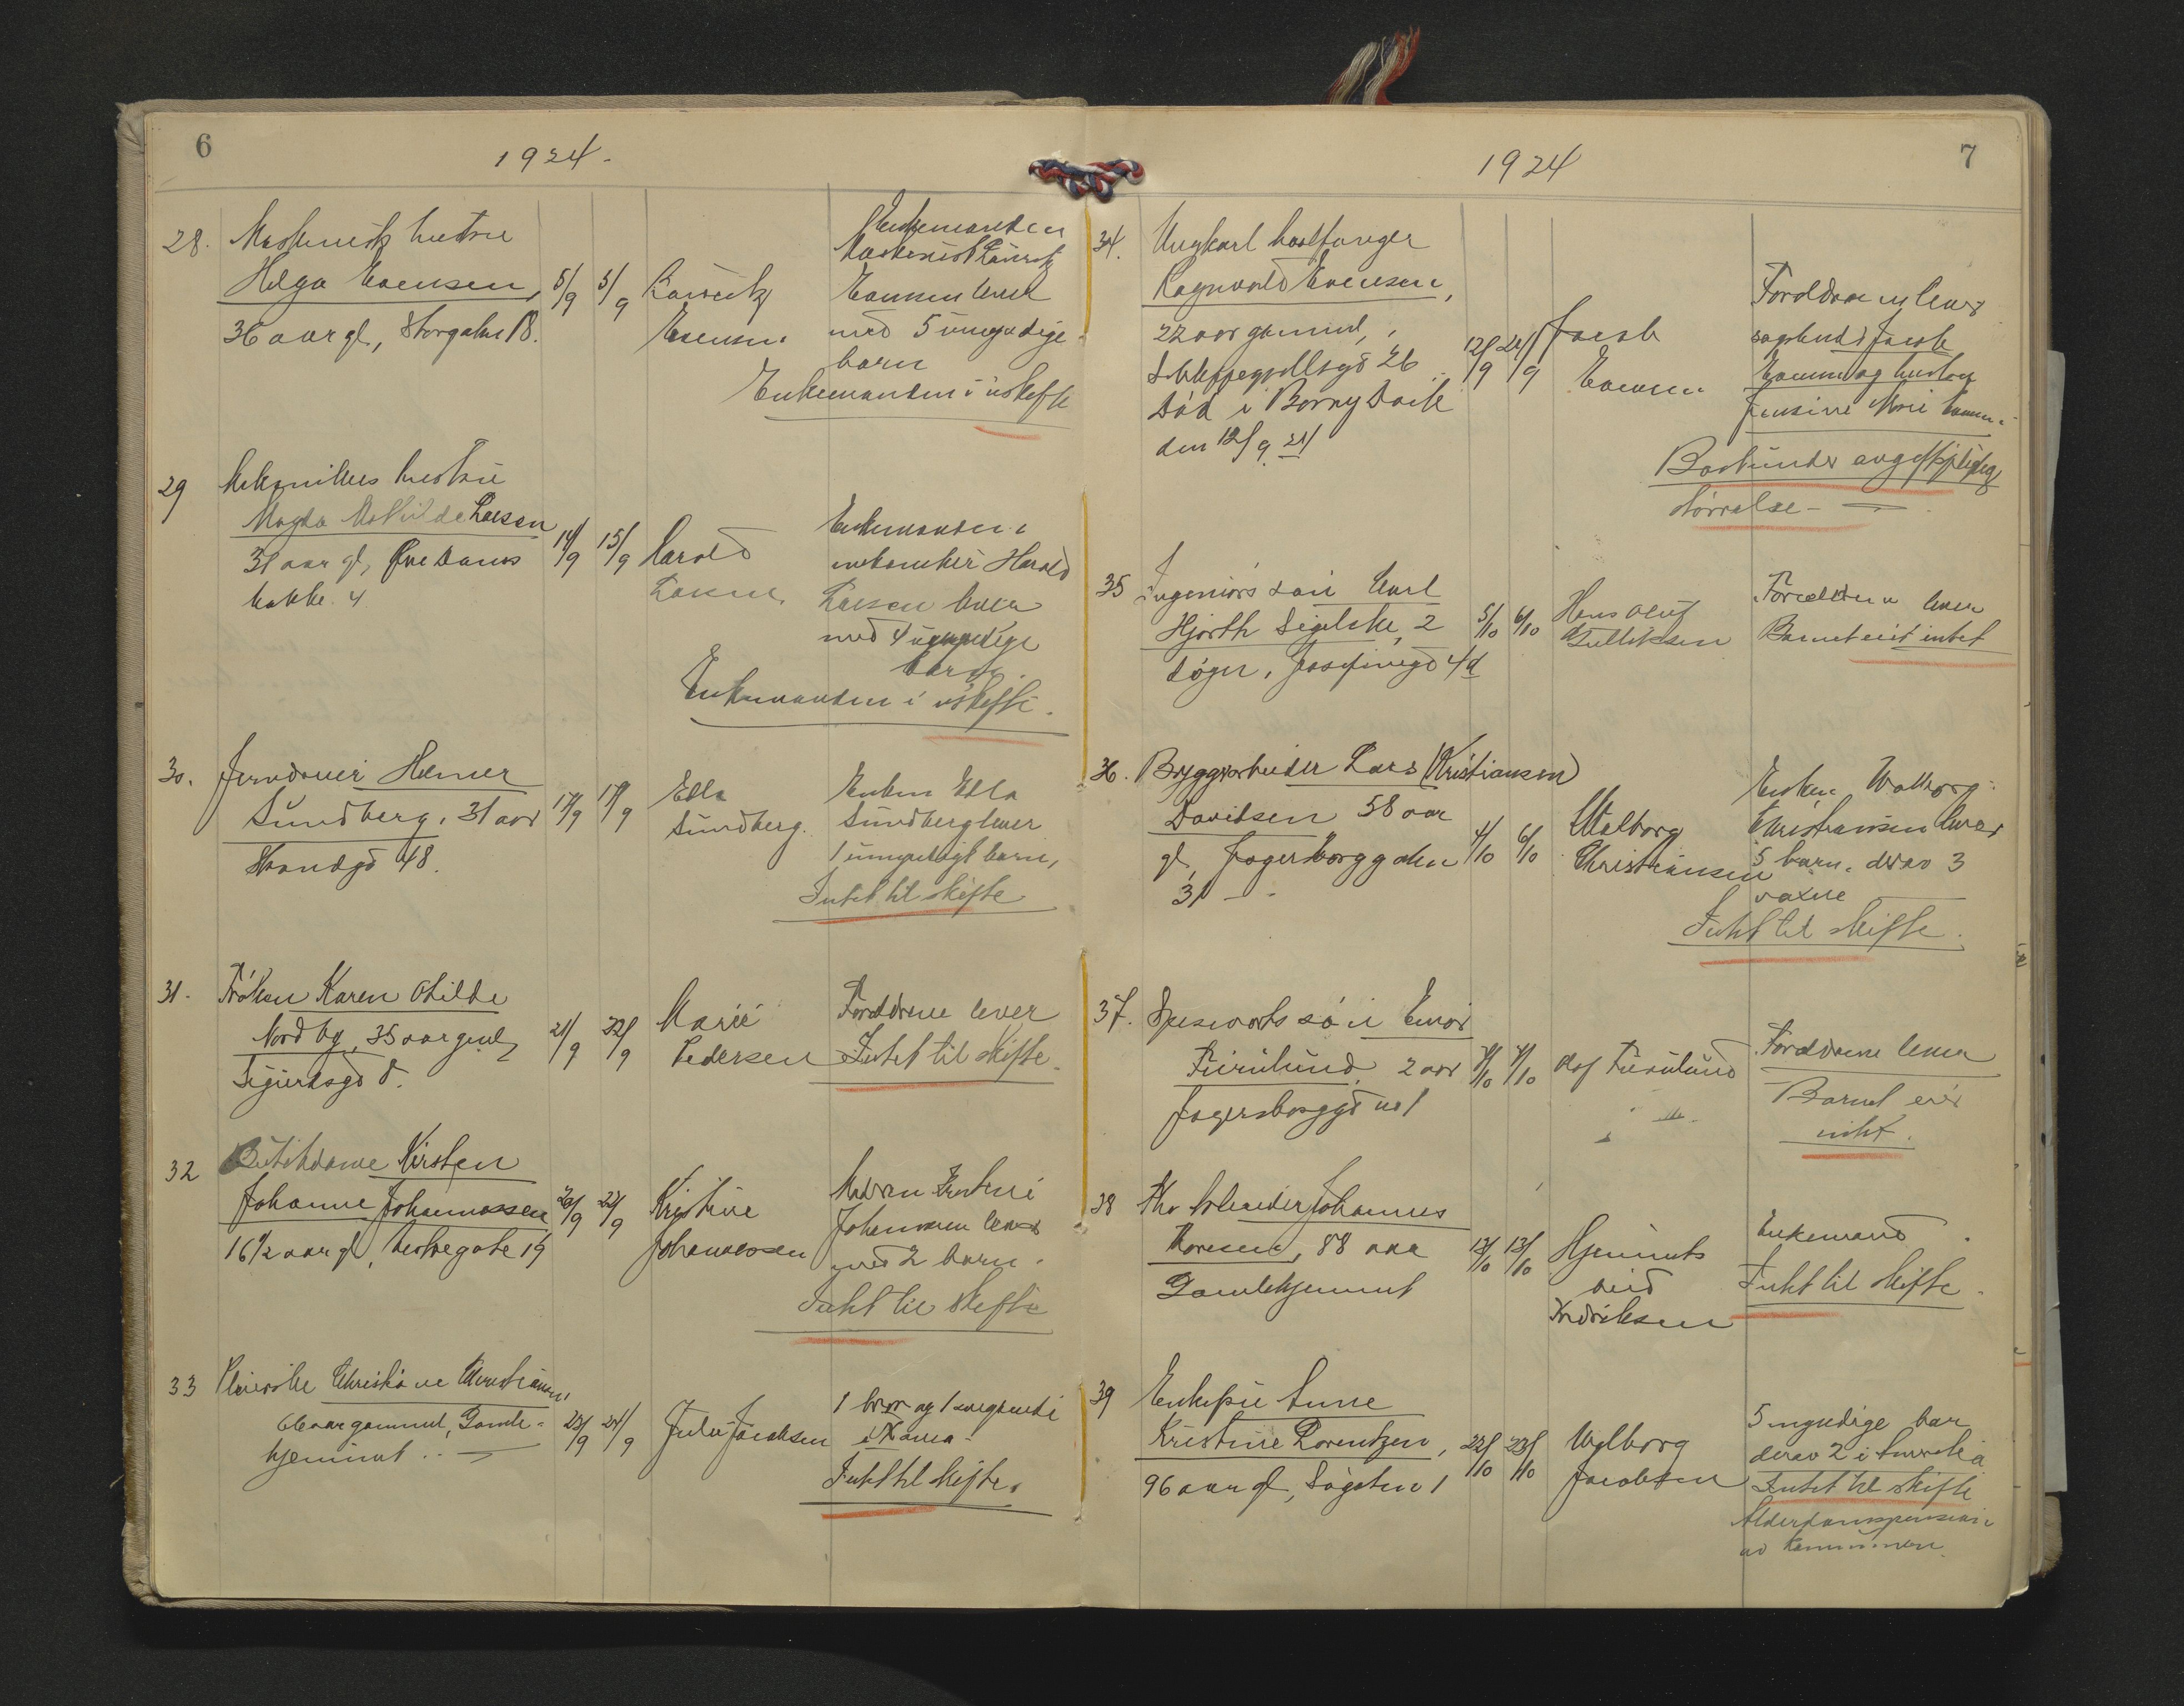 6
1924.
28. Maskinists hustru
Helga Evensen,
36 aar gl, Storgaten 18.
5/9 5/9
Lauritz
Evensen
Enkemanden
Maskinist Lauritz
Evensen lever
med 5 umyndige
barn
Enkemanden i uskifte
29 Mekanikers hustru
Magda Mathilde Larsen
31 aar gl, Øvre Dams
bakke. 4
14/9 15/9
Harald
Larsen
Enkemanden
mekaniker Harald
Larsen lever
med 4 umyndige
barn.
Enkemanden i uskifte.
30. Jerndreier Helmer
Sundberg, 31 aar
Strandgd 48.
17/9 19/9
Ella
Sundberg.
Enken Ella
Sundberg lever
1 umyndigt barn,
Intet til skifte
31. Frøken Karen Otilde
Nordby, 35 aar gml,
Sigurdsgd 8.
21/9 22/9
Marie
Pedersen
Forældrene lever
Intet til skifte.
32 Butikdame Kirsten
Johanne Johannessen
16 1/2 aar gl, Vestregate 19
20/9 22/9
Kristine
Johannessen
Moren Kristine
Johannessen lever
med 2 barn.
Intet til skifte
33 Pleierske Christiane Christiansen,
66 aar gammel, Gamle-
hjemmet.. —
23/9 24/9
Julie Jacobsen
1 bror og 1
Intet til skifte.
7
1924
34. Ungkarl hvalfanger
Ragnvald Evensen,
22 aar gammel,
Schleppegrellsgd 26
Død i Barry Dock
den 12/9 24
12/9 24/9
Jacob
Evensen
Forældrene lever
Jacob
Evensen og hustru
Jensine Marie Evensen.
Bootunder avgiftspligtig
størrelse. —
35 Ingeniørs søn Carl
Hjorth Segelcke, 2
døgn, Josefinegd 4d
5/10 6/10
Hans Oluf
Gulliksen
Forældrene lever
Barnet eiet intet
36. Bryggearbeider Lars (Kristiansen)
Davidsen 58 aar
gl, Jegersborggaten
31 —
4/10 6/10
Walborg
Christiansen
Enken Walborg
Christiansen lever
5 barn. derav 3
vaxne
Intet til skifte.
37. søn Einar
Furulund, 2 aar
Jegersborggd no 1
Olaf Furulund
Forældrene lever
Barnet eier
intet.
38 Fhv Arbeider Johannes
Thoresen, 88 aar
Gamlehjemmet
12/10 13/10
Hjemmets
ved
Fredriksen
Enkemand.
Intet til skifte.
39 Enkefru Anne
Kristine Lorentzen,
96 aar gl, Søgaten 1
22/10 23/10
Walborg
Jacobsen
5 myndige barn
derav 2 i Amerika
Intet til skifte
Alderdomspension
av kommunen.